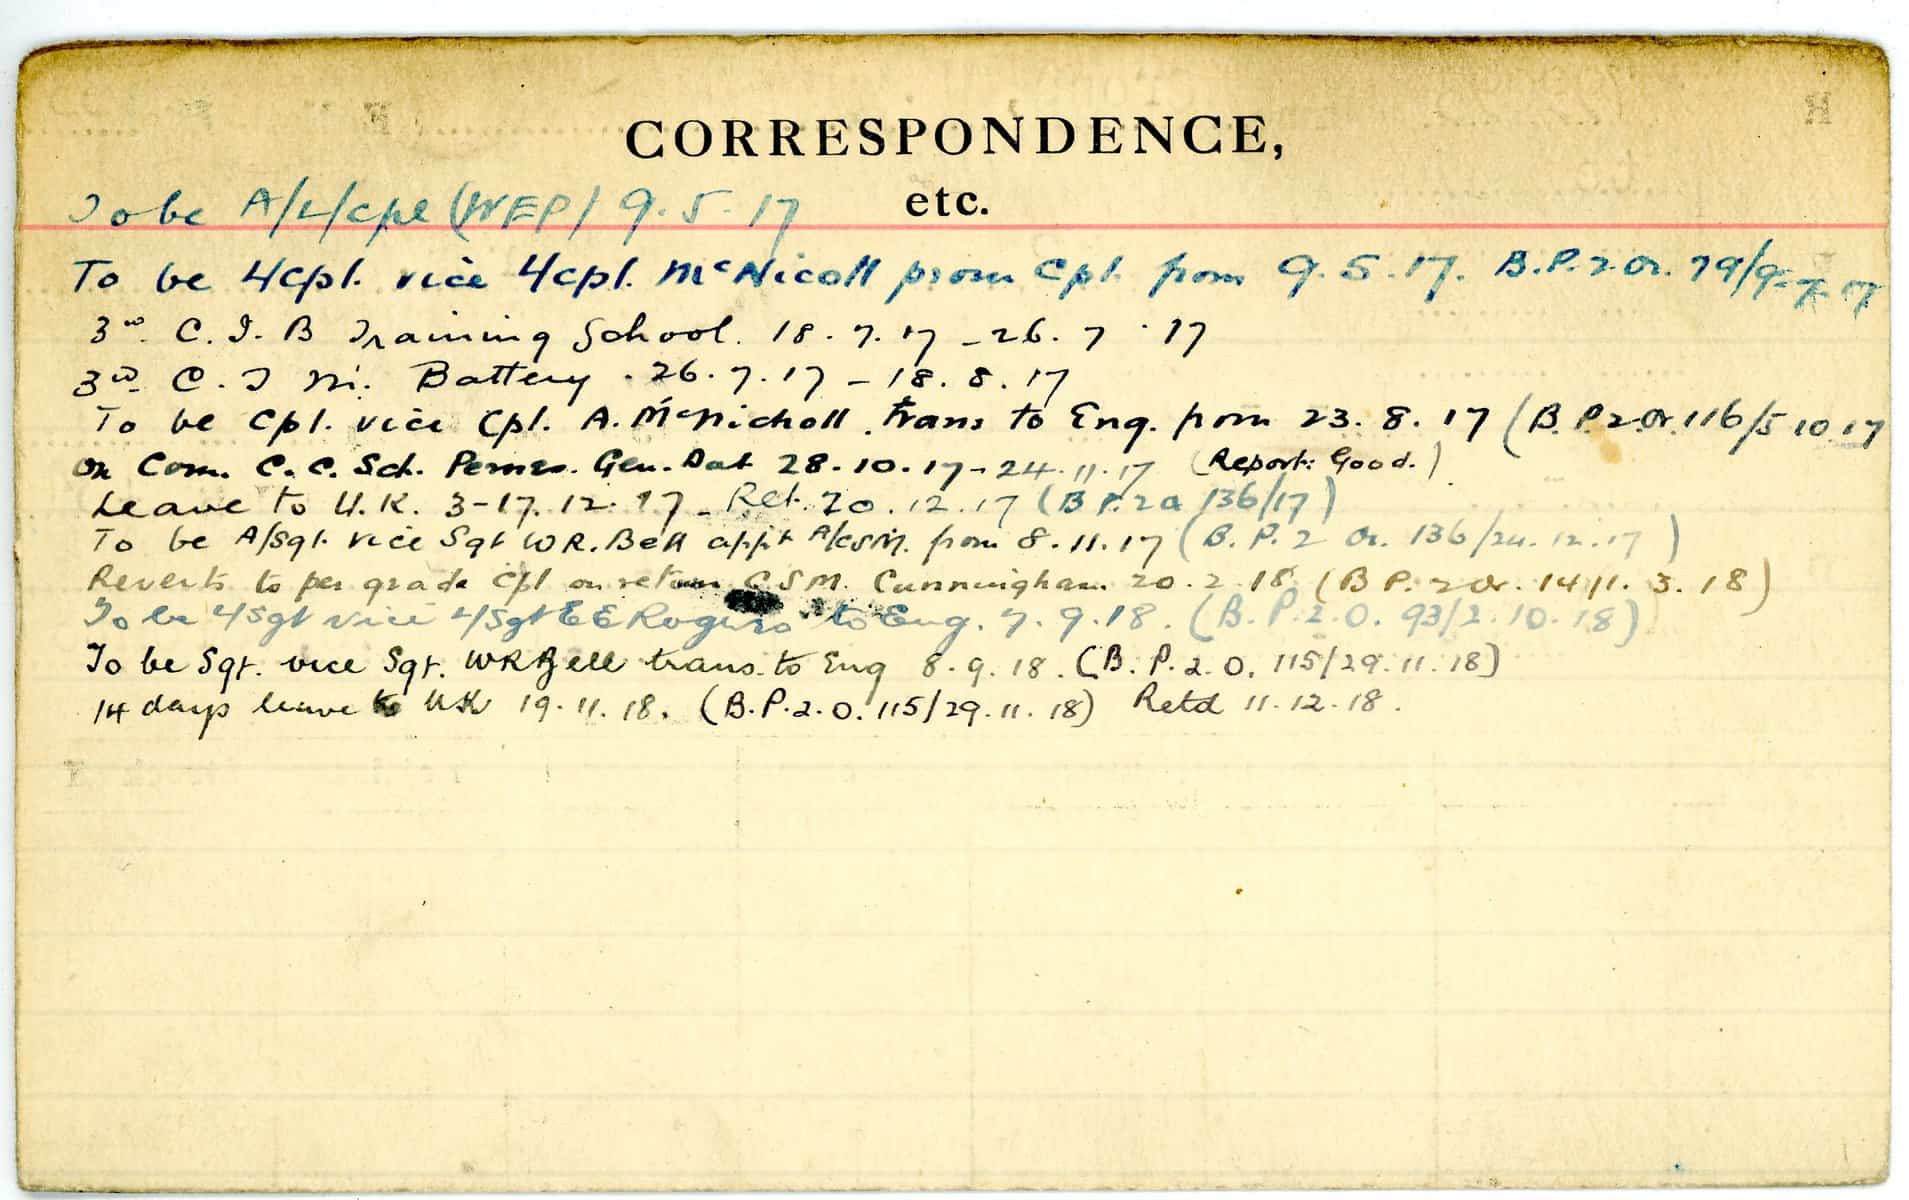 CORRESPONDENCE,
etc.
To be A/L/cpl (WEP) 9.5.17
To be L/cpl. vice L/cpl. McNicoll prom Cpl. from 9.5.17. B.P.2.Or. 79/9-7-17
3rd. C.I.B Training School. 18.7.17 - 26.7.17
3rd C.T M. Battery. 26.7.17 - 18.8.17
To be Cpl. vice Cpl. A. McNicholl. trans to Eng. from 23.8.17 (B.P.2.Or.116/5 10.17
On Com. C.C. Sch. Pernes. Gen. 28.10.17 - 24.11.17 (Report: Good.)
Leave to U.K. 3-17.12.17 - Ret. 20.12.17 (B P.2 136/17)
To be A/Sgt. vice Sgt W R. Bell appt A/CSM. from 8.11.17 (B.P.2 Or. 136/24.12.17)
Reverts to per grade Cpl on return C S M. Cunningham 20.2.18 (B P. 2 Or. 14/1. 3. 18)
To be L/Sgt vice L/Sgt E E Rogers to Eng. 7.9.18. (B.P.2.O. 93/2.10.18)
To be Sgt. vice Sgt. WR Bell trans. to Eng 8.9.18. (B.P.2.O. 115/29.11.18)
14 days leave to UK 19.11.18. (B.P.2.O.115/29.11.18) Retd 11.12.18.